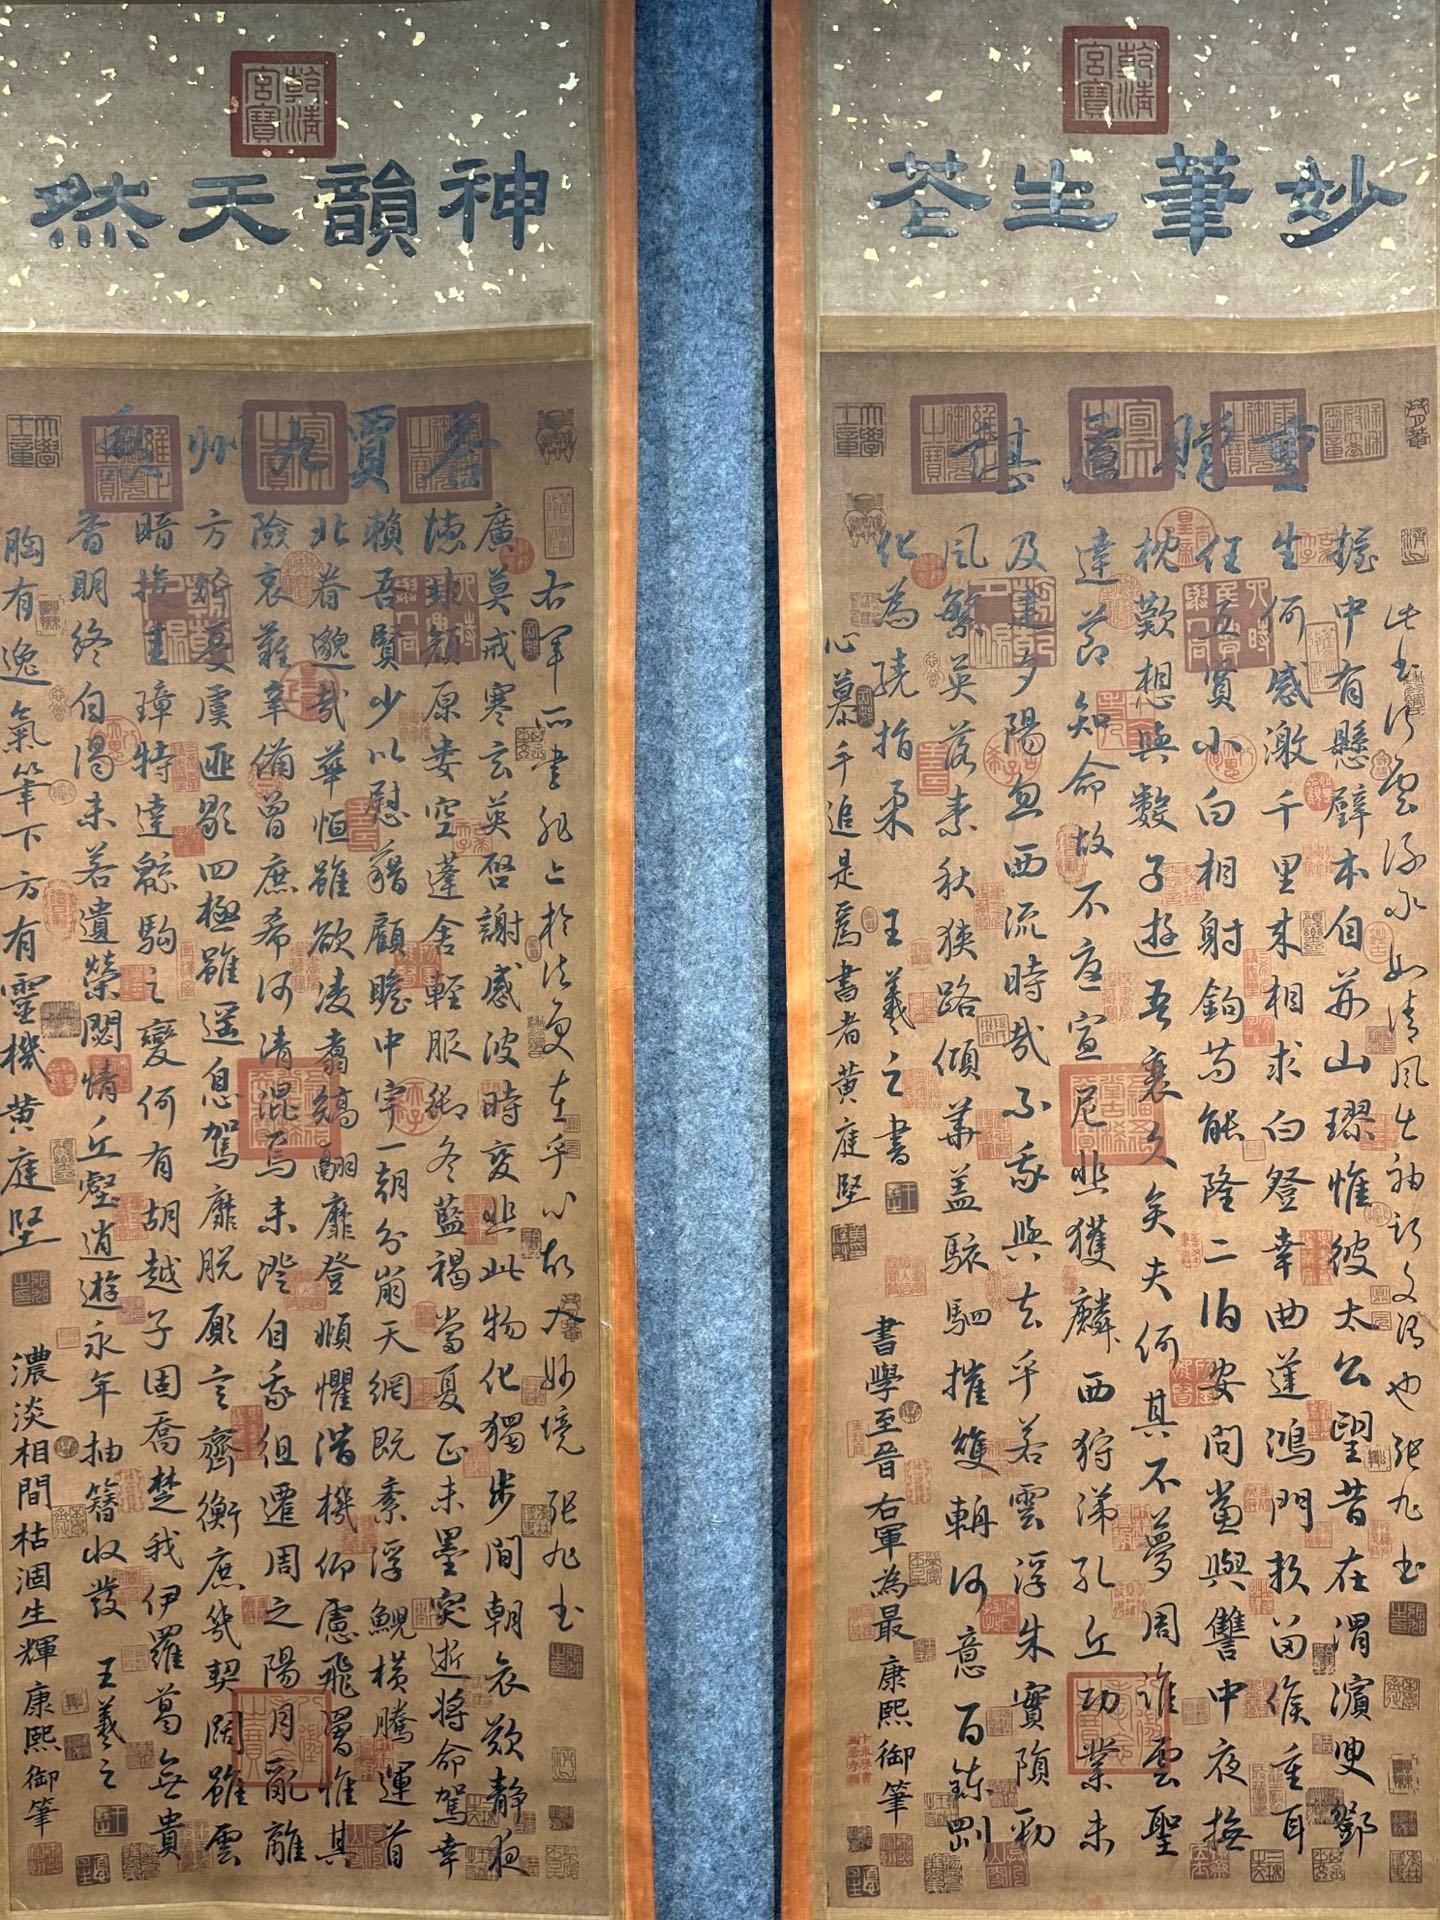 乾清宮寶
妙筆生花
重贈盧諶
此書行雲流水如清風生袖 也張旭書
握中有懸璧本自荊山璆惟彼太公望昔在渭濱叟鄧
生何感激千里來相求白登幸曲逆鴻門賴留侯重耳
任五賢小白相射鉤苟能隆二伯安問黨與讎中夜撫
枕歎想與數子遊吾衰久矣夫何其不夢周誰雲聖
達節知命故不憂宣尼悲獲麟西狩涕孔丘功業未
及建夕陽忽西流時哉不我與去乎若雲浮朱實隕勁
風繁英落素秋狹路傾華蓋駭駟摧雙輈何意百鍊剛
化為繞指柔 王羲之書
心慕手追是為書者黃庭堅
書學至晉右軍為最康熙御筆
乾清宮寶
神韻天然
答賈九州愁
右軍所書非止於法更在乎心故入妙境張旭書
廣莫戒寒玄英啓謝感彼時變悲此物化獨步間朝哀歎靜夜
德疎顏原妻空蓬舍輕服御冬藍褐當夏正未墨突逝將命駕幸
賴吾賢少以慰藉顧瞻中宇一朝分崩天網既紊浮鯢橫騰運首
北眷邈哉華恒雖欲凌翥矯翮靡登俯懼潛機仰慮飛罾惟其
險哀難辛備曾庶希河清混焉未澄自我徂遷周之陽月亂離
方焮憂虞匪歇四極雖遥息駕靡脫願言齊衡庶幾契闊雖雲
暗投圭璋特達綿駒之變何有胡越子固喬楚我伊羅葛無貴
香明終自渴未若遺榮閟情丘壑逍遊永年抽簪收髮 王羲之
胸有逸氣筆下方有靈機黃庭堅
濃淡相間枯涸生輝康熙御筆